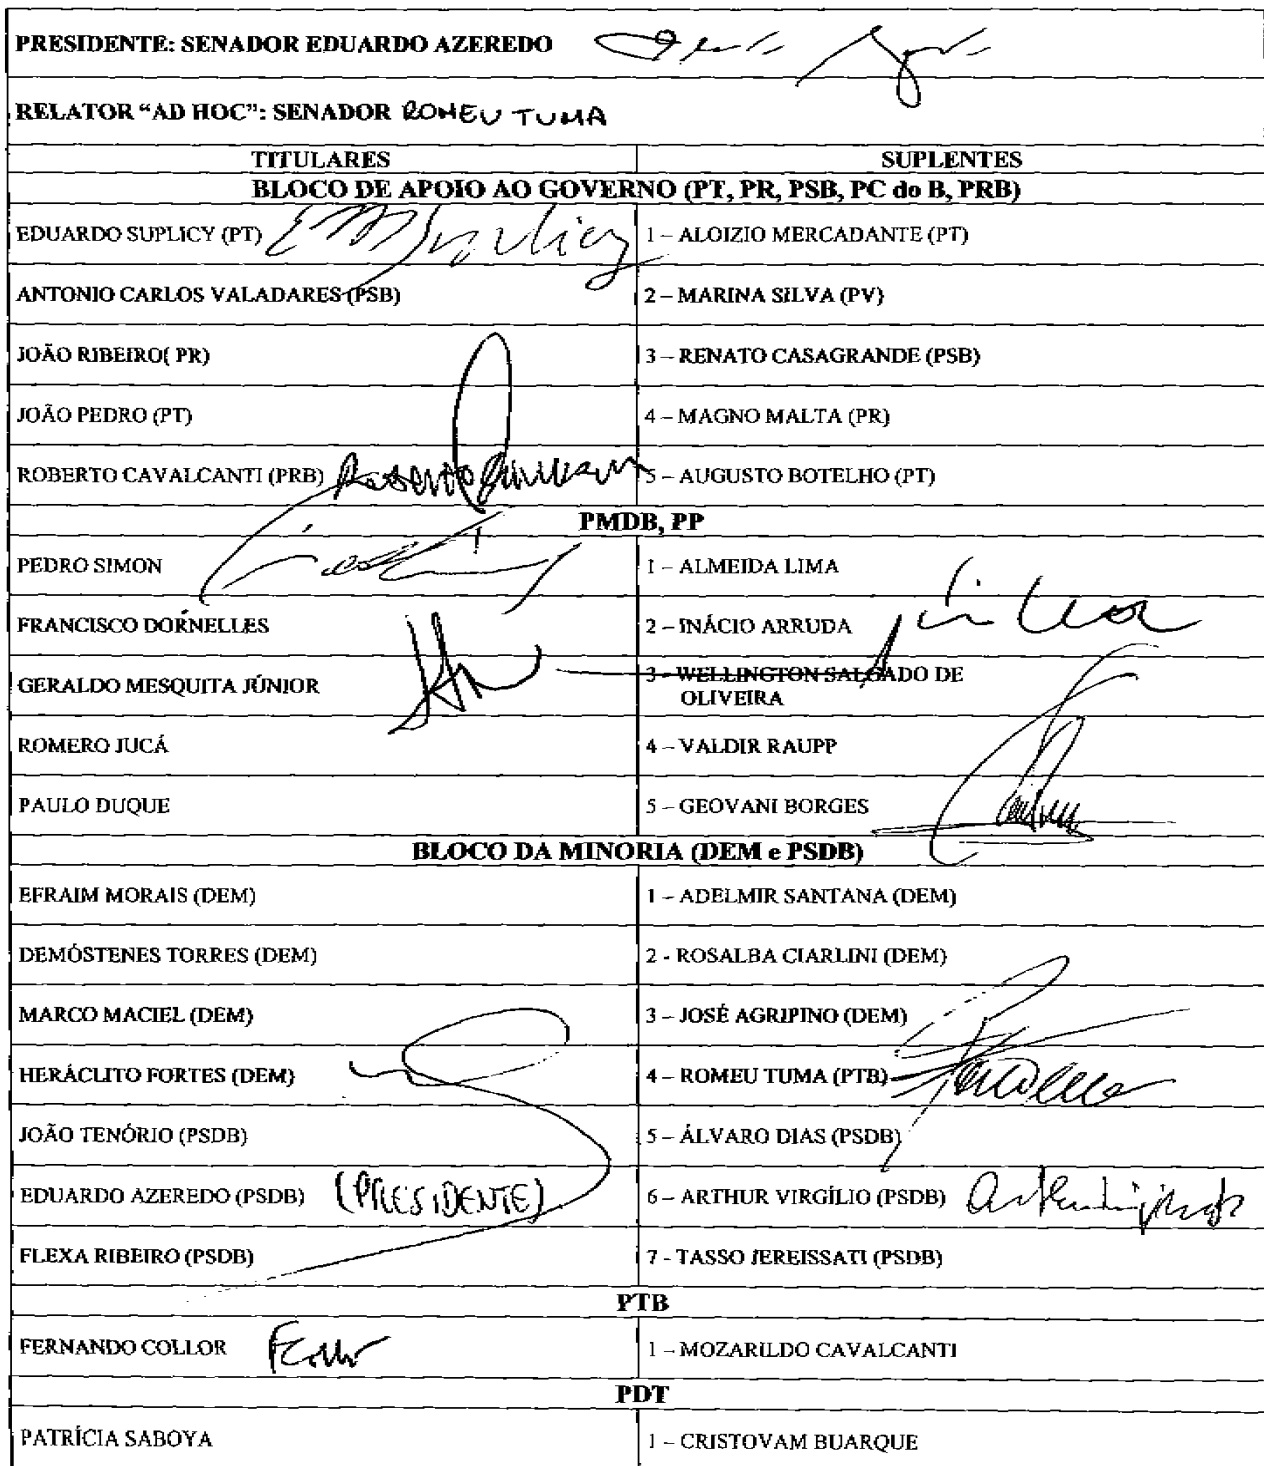 PRESIDENTE: SENADOR EDUARDO AZEREDO
RELATOR "AD HOC": SENADOR ROMEU TUMA
TITULARES SUPLENTES
BLOCO DE APOIO AO GOVERNO (PT, PR, PSB, PC do B, PRB)
EDUARDO SUPLICY (PT) 1 – ALOIZIO MERCADANTE (PT)
ANTONIO CARLOS VALADARES (PSB) 2 – MARINA SILVA (PV)
JOÃO RIBEIRO( PR) 3 – RENATO CASAGRANDE (PSB)
JOÃO PEDRO (PT) 4 – MAGNO MALTA (PR)
ROBERTO CAVALCANTI (PRB) Roberto 5 – AUGUSTO BOTELHO (PT)
PMDB, PP
PEDRO SIMON 1 – ALMEIDA LIMA
FRANCISCO DORNELLES 2 – INÁCIO ARRUDA
GERALDO MESQUITA JÚNIOR 3 - WELLINGTON SALGADO DE
OLIVEIRA
ROMERO JUCÁ 4 – VALDIR RAUPP
PAULO DUQUE 5 – GEOVANI BORGES
BLOCO DA MINORIA (DEM e PSDB)
EFRAIM MORAIS (DEM) 1 – ADELMIR SANTANA (DEM)
DEMÓSTENES TORRES (DEM) 2 - ROSALBA CIARLINI (DEM)
MARCO MACIEL (DEM) 3 – JOSÉ AGRIPINO (DEM)
HERÁCLITO FORTES (DEM) 4 – ROMEU TUMA (PTB)
JOÃO TENÓRIO (PSDB) 5 – ÁLVARO DIAS (PSDB)
EDUARDO AZEREDO (PSDB) (PRESIDENTE) 6 – ARTHUR VIRGÍLIO (PSDB)
FLEXA RIBEIRO (PSDB) 7 - TASSO JEREISSATI (PSDB)
PTB
FERNANDO COLLOR 1 – MOZARILDO CAVALCANTI
PDT
PATRÍCIA SABOYA 1 – CRISTOVAM BUARQUE